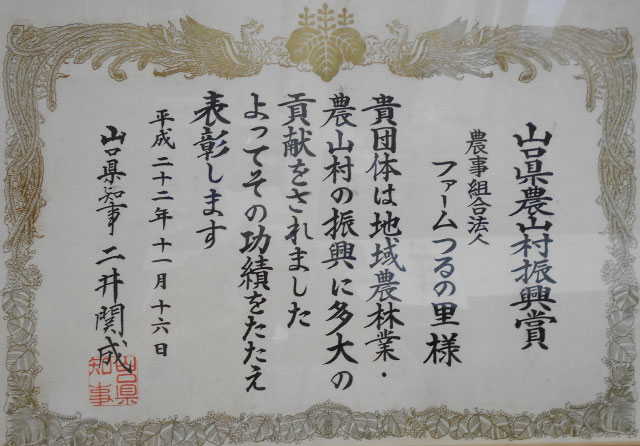 山口県農山村振興賞
農事組合法人
ファームつるの里 様
貴団体は地域農林業・
農山村の振興に多大の
貢献をされました
よってその功績をたたえ
表彰します
平成二十二年十一月十六日
山口県知事 二井関成
山口県
知事